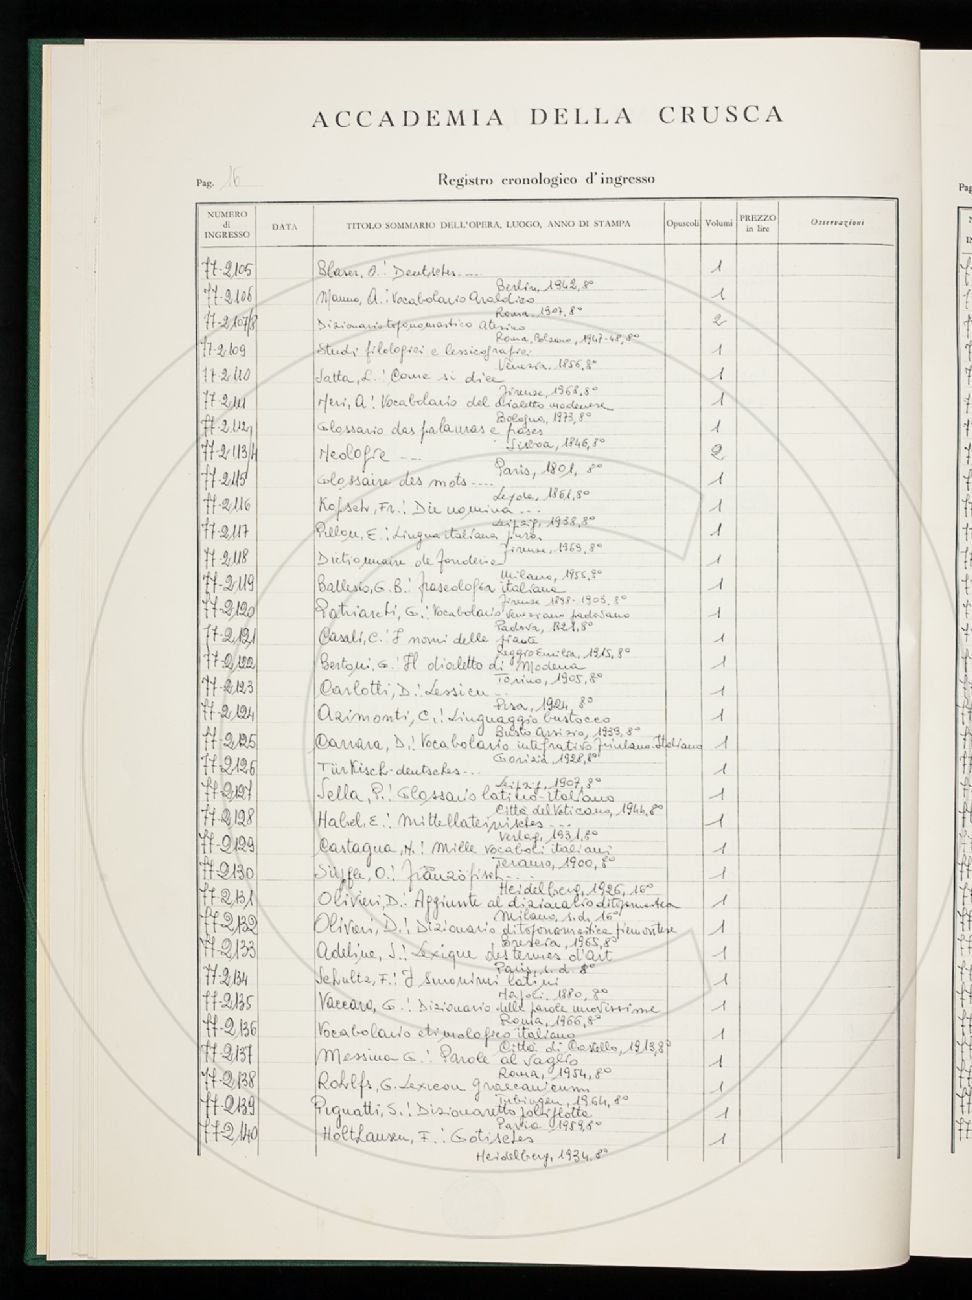 ACCADEMIA DELLA CRUSCA
Pag. 16
Registro cronologico d'ingresso
NUMERO di INGRESSO DATA TITOLO SOMMARIO DELL'OPERA, LUOGO, ANNO DI STAMPA Opuscoli Volumi PREZZO in lire Osservazioni
77-2105 Blaser, O.: Deutsches.... 1
Berlin, 1942, 8°
77-2106 Manno, A.: Vocabolario Araldico 1
Roma, 1907, 8°
77-2107/8 Dizionario toponomastico Atesino 2
Roma, Bolzano, 1947-48, 8°
77-2109 Studi filologici e lessicografici 1
Venezia, 1856, 8°
77-2110 Satta, L.: Come si dice 1
Firenze, 1968, 8°
77-2111 Neri, A: Vocabolario del dialetto modenese 1
Bologna, 1973, 8°
77-2112 Glossario das palauras e frases 1
Lisboa, 1846, 8°
77-2113/4 Neologie ... 2
Paris, 1801, 8°
77-2115 Glossaire des mots.... 1
Leyde, 1861, 8°
77-2116 Die nomina ... 1
Leipzig, 1938, 8°
77-2117 E.: Lingua italiana pura 1
Firenze, 1969, 8°
77-2118 Dictionnaire de fonderie 1
Milano, 1955, 8°
77-2119 G.B.: fraseologia italiana 1
Firenze 1898-1903, 8°
77-2120 Patriarchi, G.: Vocabolario veneziano padovano 1
Padova, 1821, 8°
77-2121 Casali, C.: I nomi delle piante 1
Reggio Emilia, 1915, 8°
77-2122 Bertoni, G.: Il dialetto di Modena 1
Torino, 1905, 8°
77-2123 Carlotti, D.: Lessicu ... 1
Pisa, 1924, 8°
77-2124 Azimonti, C.: Linguaggio bustocco 1
Busto Arsizio, 1939, 8°
77-2125 Carrara, D.: Vocabolario integrativo friulano-Italiano 1
Gorizia, 1928, 8°
77-2126 Türkisch-deutsches... 1
Leipzig, 1907, 8°
77-2127 Sella, P.: Glossario latino-italiano 1
Città del Vaticano, 1944, 8°
77-2128 Habel, E.: Mittellateinisches ... 1
Verlag, 1931, 8°
77-2129 Castagna, N.: Mille vocaboli italiani 1
Teramo, 1900, 8°
77-2130 O.: Französisch.... 1
Heidelberg, 1926, 16°
77-2131 Olivieri, D.: Aggiunte al dizionario di 1
Milano, s.d., 16°
77-2132 Olivieri, D.: Dizionario di toponomastica piemontese 1
Brescia, 1965, 8°
77-2133 Adeline, J.: Lexique des termes d'art 1
Paris, s. d. 8°
77-2134 Schultz, F.: I sinonimi latini 1
Napoli, 1880, 8°
77-2135 Vaccaro, G.: Dizionario delle parole nuovissime 1
Roma, 1966, 8°
77-2136 Vocabolario etimologico italiano 1
Città di Castello, 1913, 8°
77-2137 Messina G.: Parole al vaglio 1
Roma, 1954, 8°
77-2138 Rohlfs, G. Lexicon graecanicum 1
Tubingen, 1964, 8°
77-2139 Pignatti, S.: Dizionaretto poliglotta 1
Pavia, 1959, 8°
77-2140 Holthausen, F.: Gotisches 1
Heidelberg, 1934, 8°